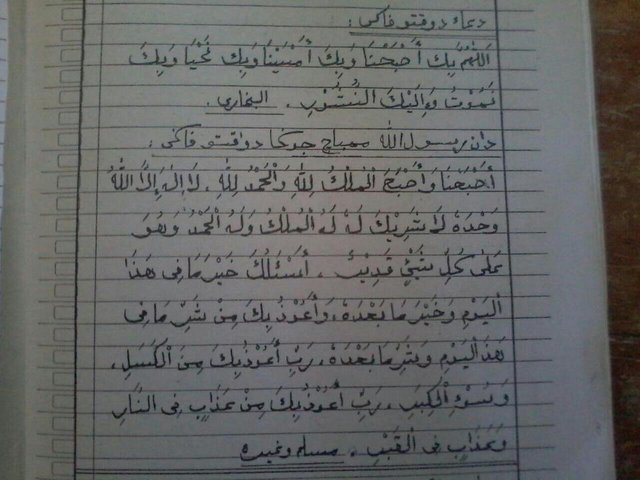 دعاء دوقتو ڤاݢي :
اَللّٰهُمَّ بِكَ أَصْبَحْنَا وَبِكَ أَمْسَيْنَا وَبِكَ نَحْيَا وَبِكَ
نَمُوْتُ وَإِلَيْكَ النُّشُوْرِ . البخاري .
دان رسول الله ممباچ جوݢا دواقتو ڤاݢي :
أَصْبَحْنَا وَأَصْبَحَ الْمُلْكُ لِلّٰهِ وَالْحَمْدُ لِلّٰهِ ، لَا إِلٰهَ إِلَّا اللّٰهُ
وَحْدَهُ لَا شَرِيْكَ لَهُ لَهُ الْمُلْكُ وَلَهُ الْحَمْدُ وَهُوَ
عَلَى كُلِّ شَيْئٍ قَدِيْرٌ . أَسْئَلُكَ خَيْرَ مَا فِى هَذَا
الْيَوْمِ وَخَيْرَ مَا بَعْدَهُ ، وَأَعُوْذُ بِكَ مِنْ شَرِّ مَا فِى
هَذَا الْيَوْمِ وَشَرِّ مَا بَعْدَهُ ، رَبِّ أَعُوْذُ بِكَ مِنَ الْكَسَلِ ،
وَسُوْءِ الْكِبَرِ ، رَبِّ أَعُوْذُ بِكَ مِنْ عَذَابٍ فِى النَّارِ
وَعَذَابٍ فِى الْقَبْرِ . مسلم وغيره